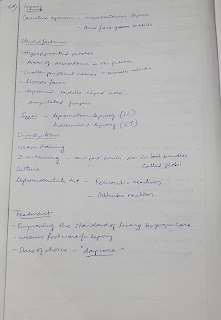 Leprosy
Causative organism - mycobacterium leprae
- Acid fast gram
Clinical features
- Hypopigmented patches
- Areas of anaesthesia in the patches
- peripheral nerves -
- face
- depressed saddle shaped nose
- amputated fingers
Types - lepromatous leprosy (LL)
tuberculoid leprosy (TT)
Gram staining
Z-N staining - acid fast bacilli seen in bundles
called globi
Culture
Lepromin test - Fernandez reactions
- Mitsuda reaction
Treatment
- Improving the standard of living
- wearing footwear for leprosy
- Drug of choice - "dapsone"